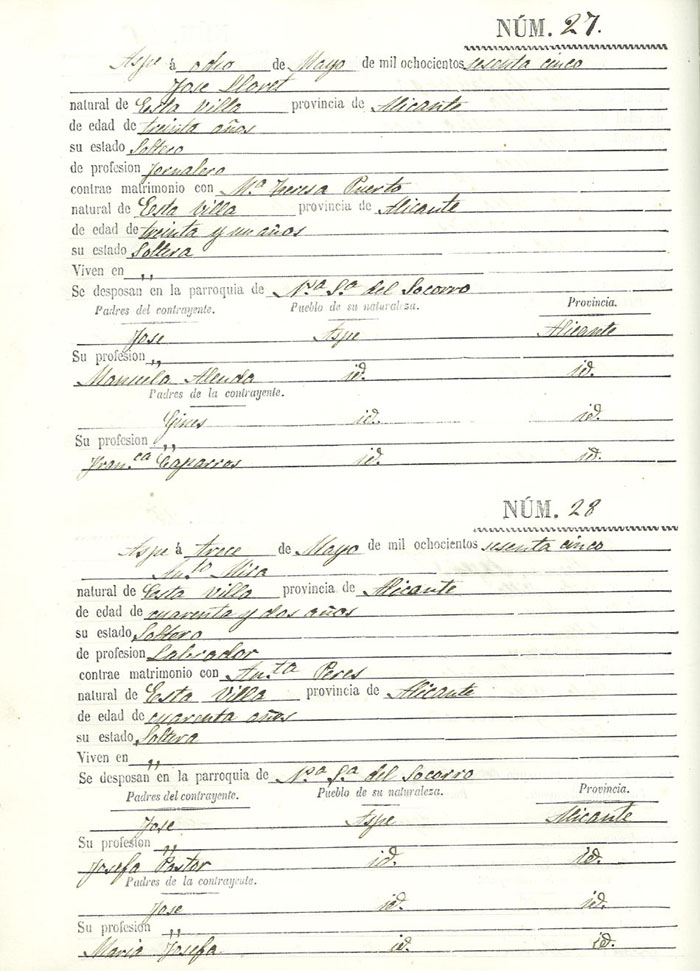 NÚM. 27.
Aspe á ocho de Mayo de mil ochocientos sesenta cinco
Jose Lloret
natural de Esta Villa provincia de Alicante
de edad de treinta años
su estado Soltero
de profesion Jornalero
contrae matrimonio con Mª Theresa Puerto
natural de Esta Villa provincia de Alicante
de edad de treinta y un años
su estado Soltera
Viven en ,,
Se desposan en la parroquia de Nª Sª del Socorro
Padres del contrayente. Pueblo de su naturaleza. Provincia.
Jose Aspe Alicante
Su profesion ,,
Manuela Alenda id. id.
Padres de la contrayente.
Gines id. id.
Su profesion ,,
Fran.ca Caparros id. id.
NÚM. 28
Aspe á trece de Mayo de mil ochocientos sesenta cinco
An.to Mira
natural de Esta Villa provincia de Alicante
de edad de cuarenta y dos años
su estado Soltero
de profesion Labrador
contrae matrimonio con An.ta Peres
natural de Esta Villa provincia de Alicante
de edad de cuarenta años
su estado Soltera
Viven en ,,
Se desposan en la parroquia de Nª Sª del Socorro
Padres del contrayente. Pueblo de su naturaleza. Provincia.
Jose Aspe Alicante
Su profesion ,,
Josefa Pastor id. id.
Padres de la contrayente.
Jose id. id.
Su profesion ,,
Maria Josefa id. id.